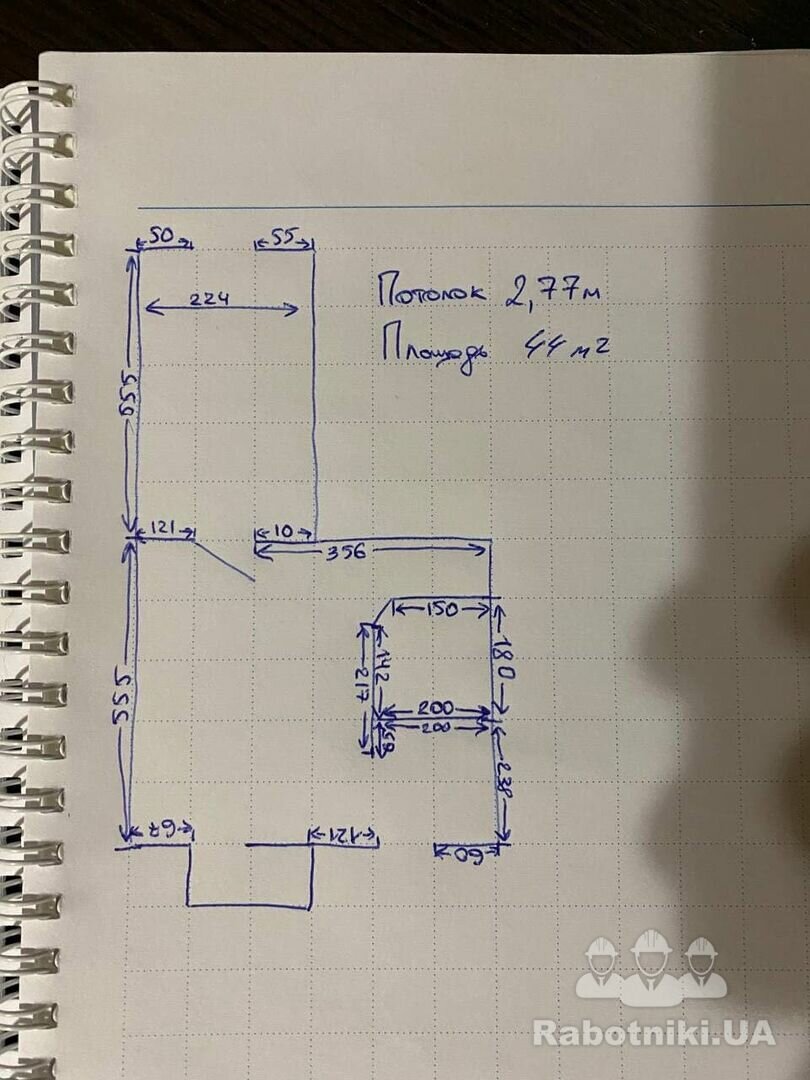 50
55
224
Потолок 2,77м
Площадь 44 м2
555
121
10
356
150
180
142
217
200
200
59
555
238
67
121
60
Rabotniki.UA